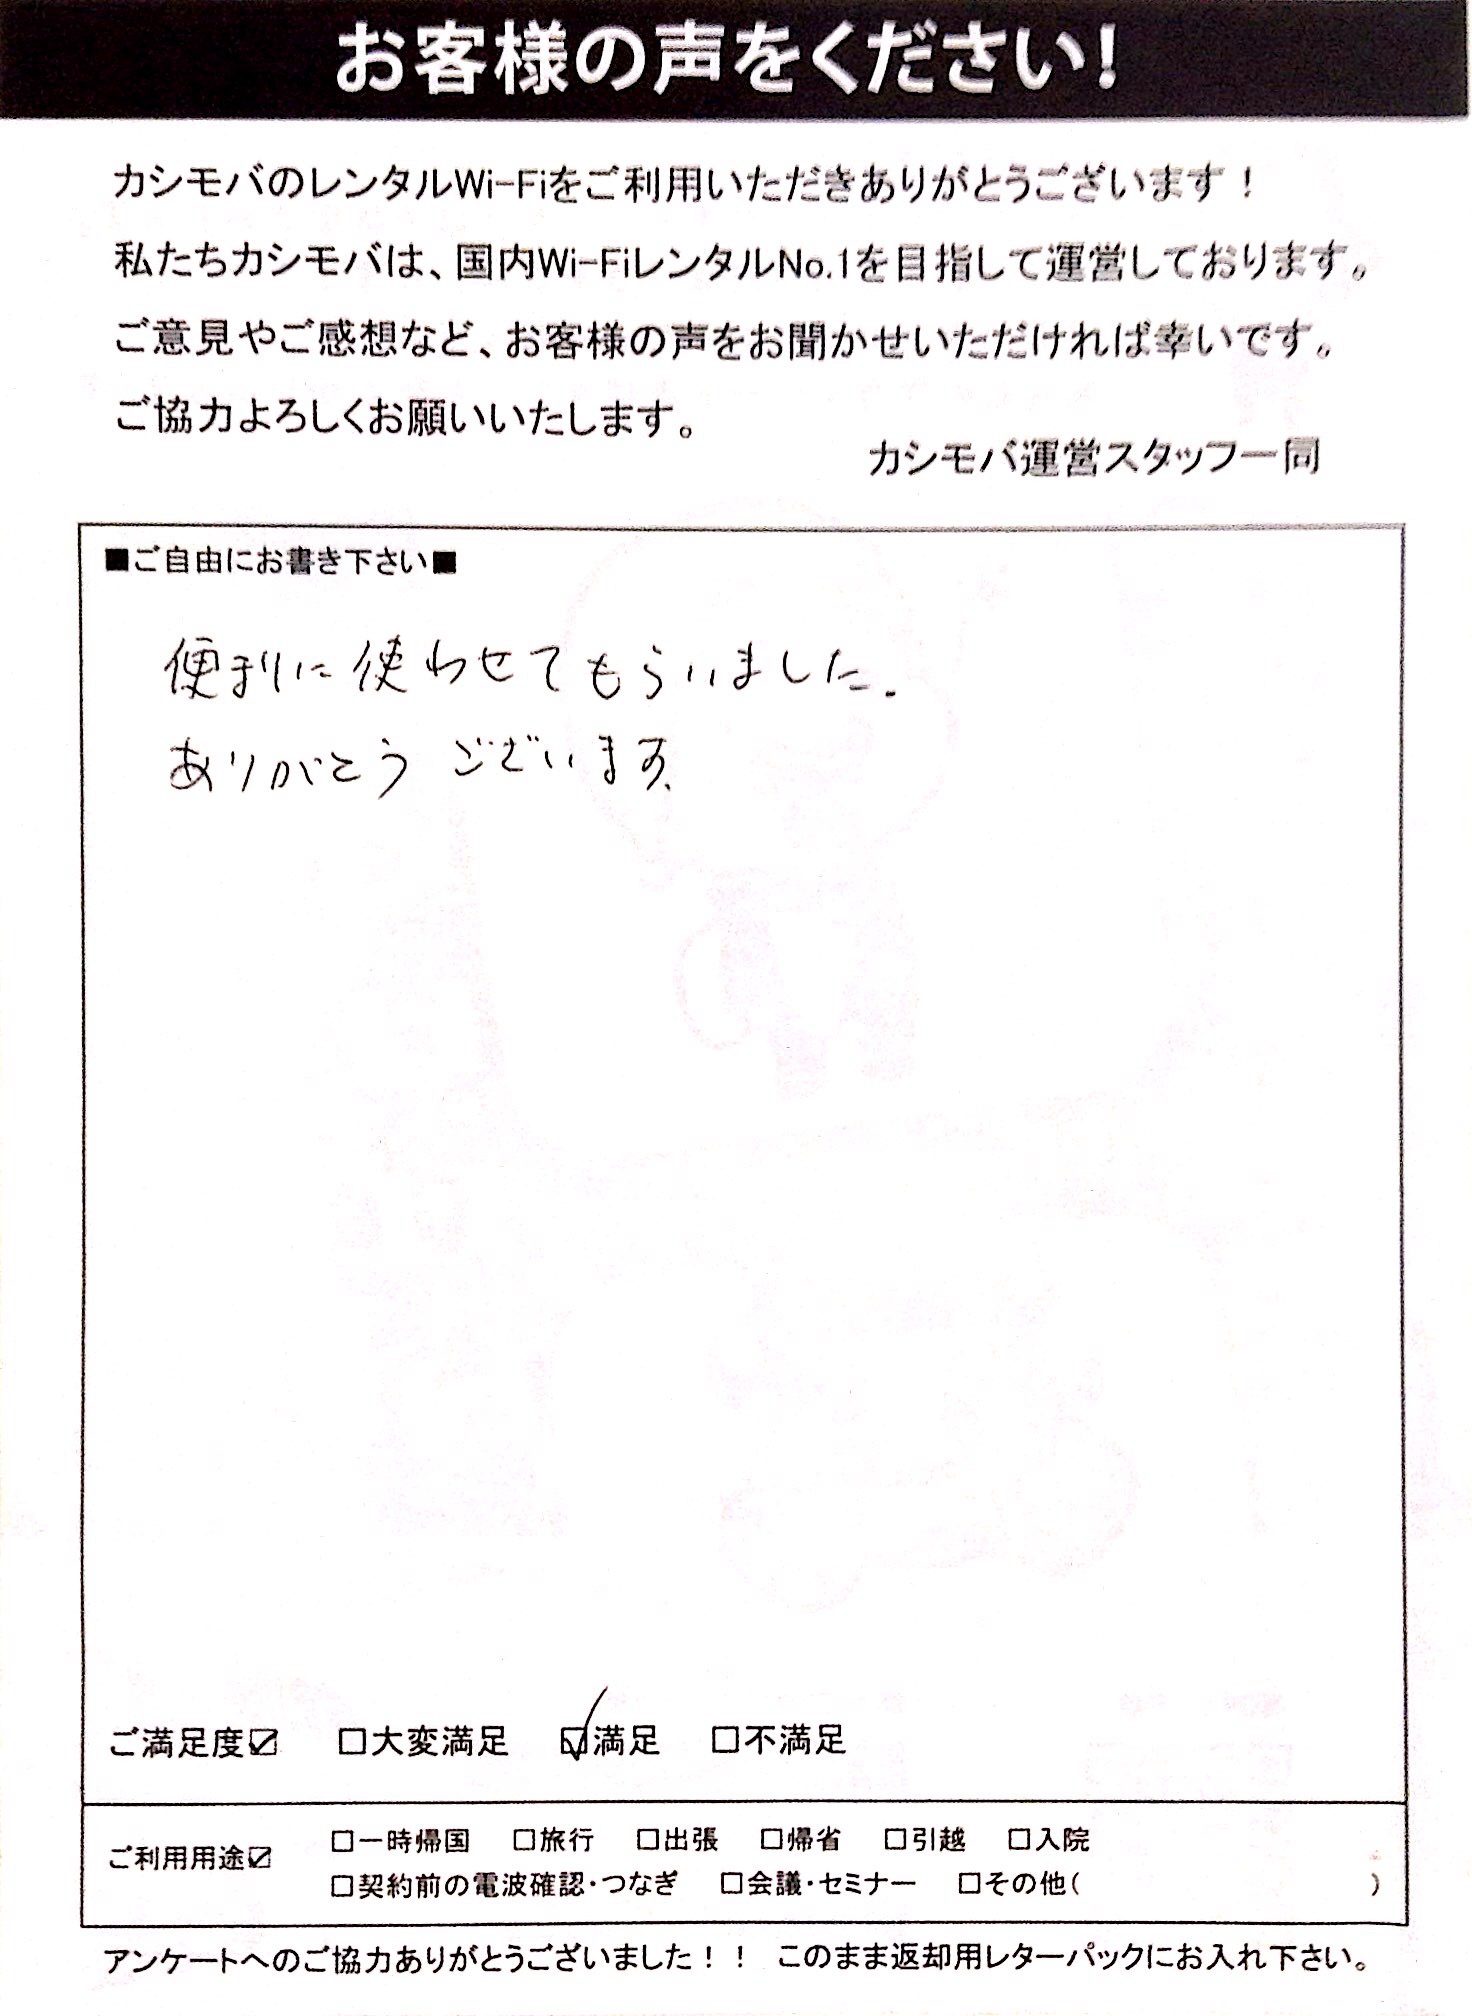 お客様の声をください！
カシモバのレンタルWi-Fiをご利用いただきありがとうございます！
私たちカシモバは、国内Wi-FiレンタルNo.1を目指して運営しております。
ご意見やご感想など、お客様の声をお聞かせいただければ幸いです。
ご協力よろしくお願いいたします。
カシモバ運営スタッフ一同
■ご自由にお書き下さい■
便利に使わせてもらいました.
ありがとうございます.
ご満足度☑ □大変満足 ☑満足 □不満足
ご利用用途☑ □一時帰国 □旅行 □出張 □帰省 □引越 □入院
□契約前の電波確認・つなぎ □会議・セミナー □その他( )
アンケートへのご協力ありがとうございました！！ このまま返却用レターパックにお入れ下さい。